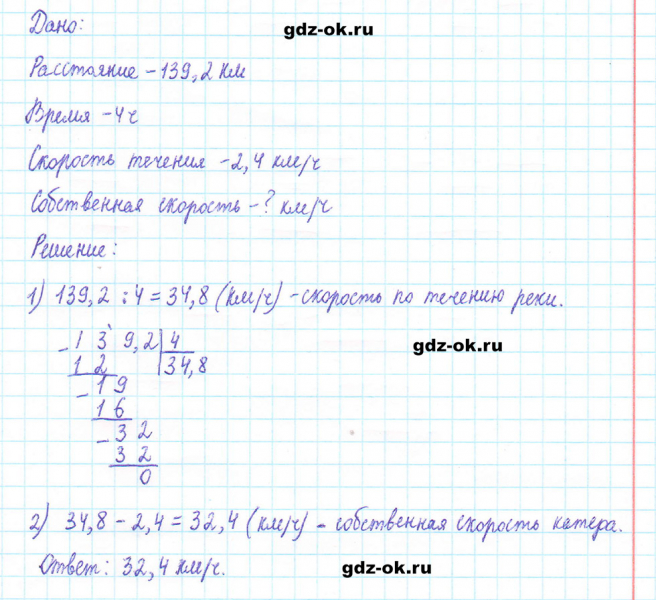 Дано:
gdz-ok.ru
Расстояние - 139,2 км
Время - 4 ч
Скорость течения - 2,4 км/ч
Собственная скорость - ? км/ч
Решение:
1) 139,2 : 4 = 34,8 (км/ч) - скорость по течению реки.
- 1 3 9,2 | 4
1 2 | 34,8
gdz-ok.ru
- 1 9
1 6
- 3 2
3 2
0
2) 34,8 - 2,4 = 32,4 (км/ч) - собственная скорость катера.
Ответ: 32,4 км/ч.
gdz-ok.ru